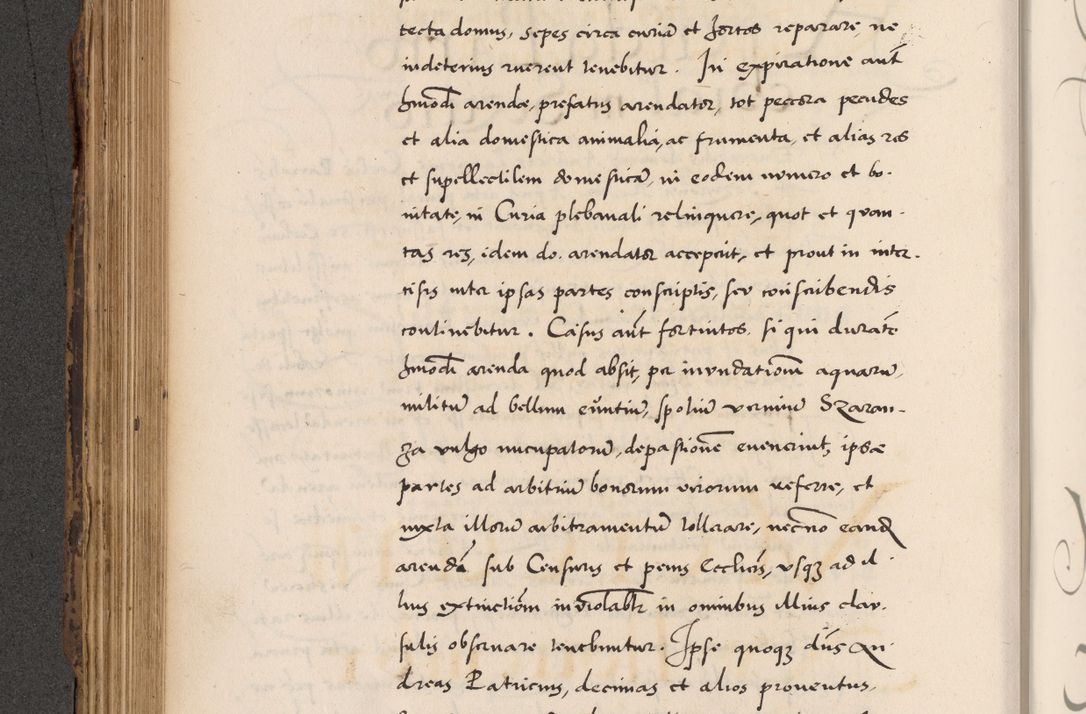 tecta domus, sepes circa curiam et hortos reparare, ne
in deterius ruerent tenebitur. In expiratione aūt
hmōdi arendæ, prefatus arendator, tot peccora pecudes
et alia domestica animalia, ac frumenta, et alias res
et supellectilem domesticā, in eodem numero et bo-
nitate, in Curia plebanali relinquere, quot et quan-
tas res, idem do. arendator acceperit, et prout in inter-
cisis inter ipsas partes conscriptis, seu conscribendis
continebitur. Casus aūt fortuitos, si qui durāte
hmōdi arenda quod absit, per inundationem aquarū,
militū ad bellum euntiū, spoliū vermiū Szaran-
za vulgo nucupatorū, depastionē euenerint, ipsæ
partes ad arbitriū bonorum virorum referre, et
iuxta illorū arbitramentū tollerare, necno eandē
arendā sub Censuris et penis Ecclīcis, vsq3 ad il-
lius extinctionem inviolablr in omnibus illius clau-
sulis obseruare tenebuntur. Ipse quoq3 dūs An-
dreas Patricius, decimas et alios prouentus,